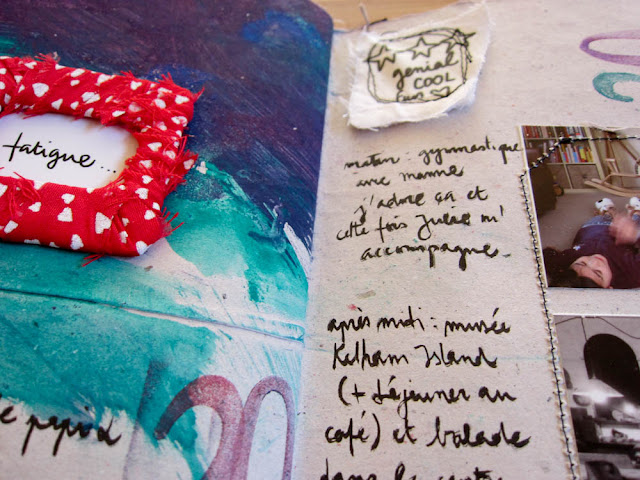 fatigue...
20
genial
COOL
fun
matin : gymnastique
avec mamie
j'adore ça et
cette fois Juene m'
accompagne.
après midi : musée
Kelham Island
(+ déjeuner au
café) et balade
dans le centre